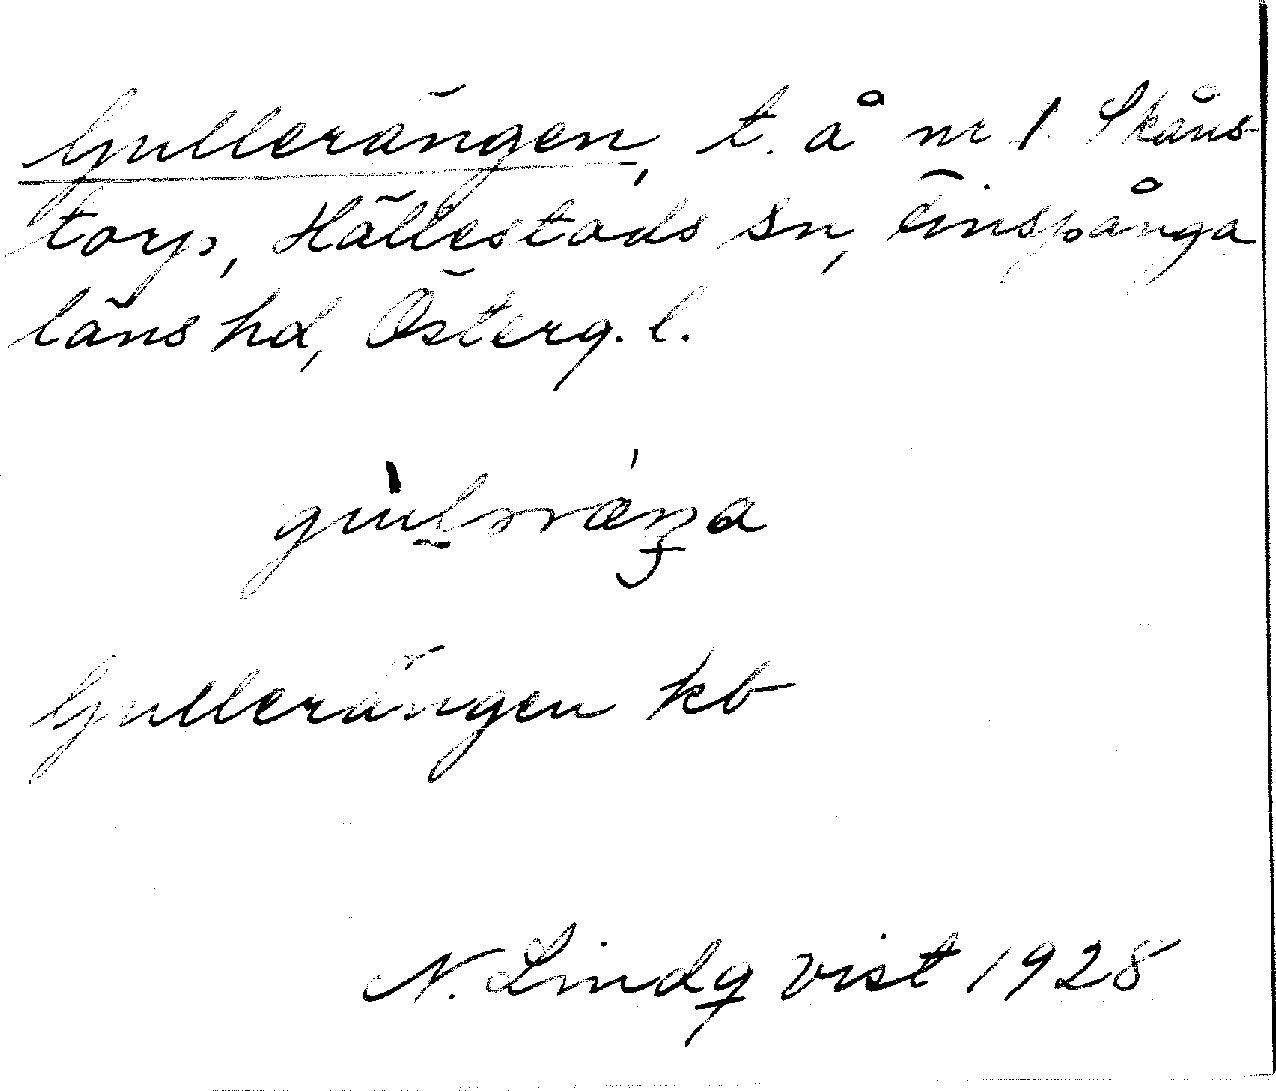 Gullerängen, t. å nr 1 Skåns-
torp, Hällestads sn, Finspånga
läns hd, Österg. l.
Gullerängen kb
N. Lindqvist 1928